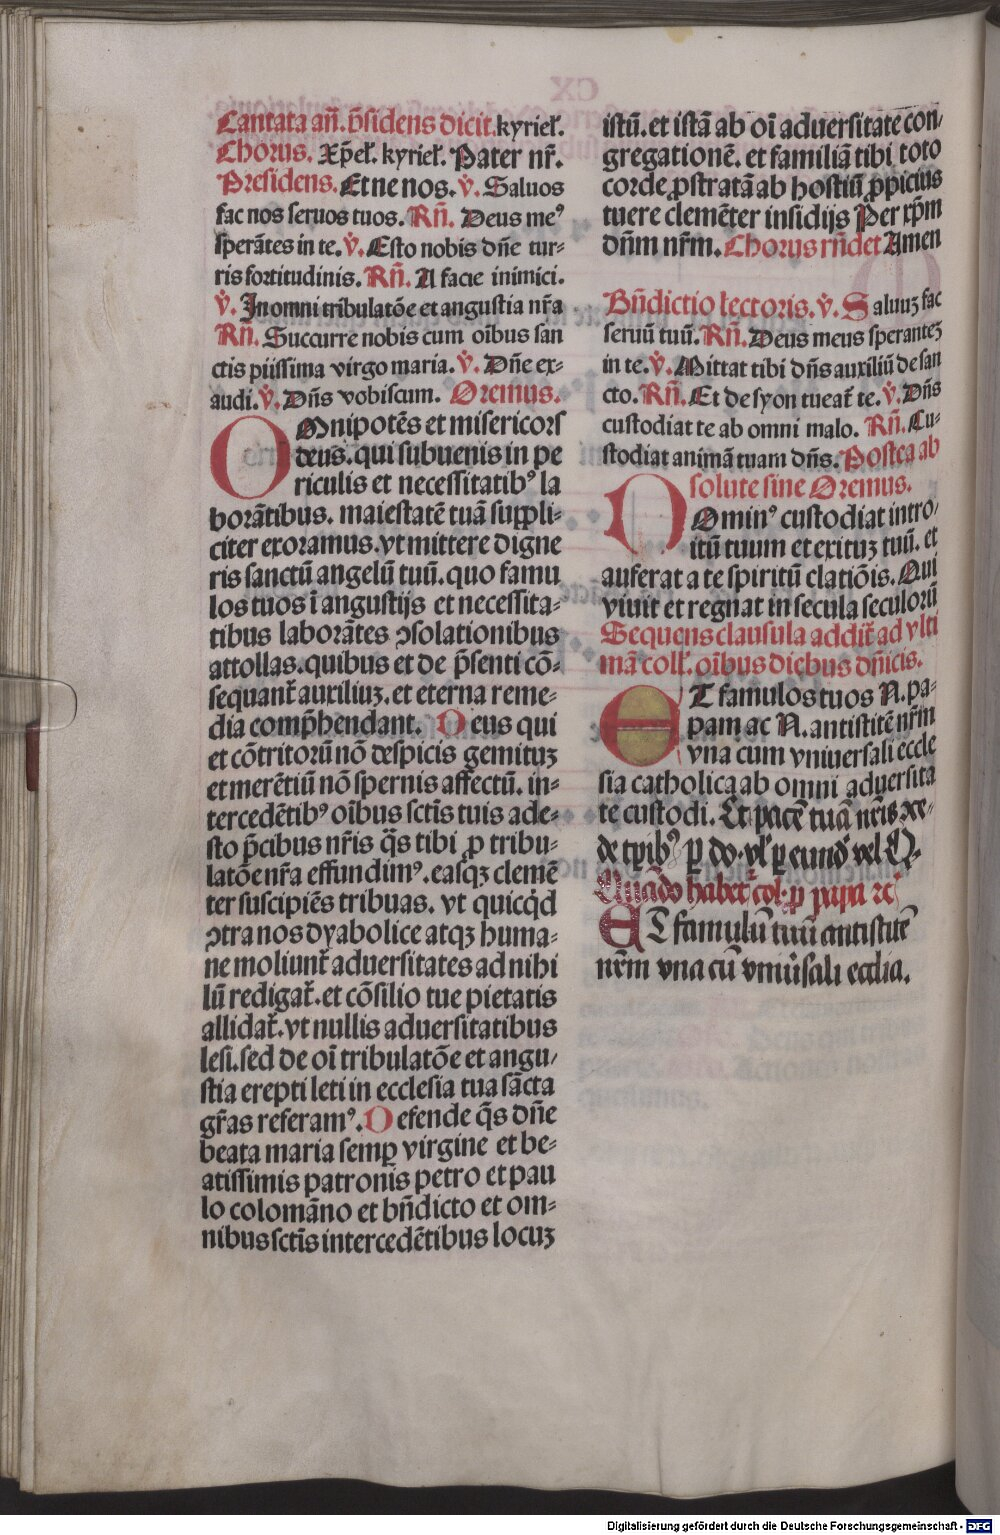 Cantata añ. p̄sidens dicit. kyrieł.
Chorus. Xp̄eł. kyrieł. Pater nr̄.
Presidens. Et ne nos. v̄. Saluos
fac nos seruos tuos. Rñ. Deus meꝰ
sperātes in te. v̄. Esto nobis dñe tur-
ris fortitudinis. Rñ. A facie inimici.
v̄. In omni tribulatōe et angustia nr̄a
Rñ. Succurre nobis cum oībus san
ctis piissima virgo maria. v̄. Dñe ex-
audi. v̄. Dñs vobiscum. Oremus.
OMnipotēs et misericors
deus. qui subuenis in pe
riculis et necessitatibꝰ la
borātibus. maiestatē tuā suppli-
citer exoramus. vt mittere digne
ris sanctū angelū tuū. quo famu
los tuos ī angustijs et necessita-
tibus laborātes ↄsolationibus
attollas. quibus et de p̄senti cō-
sequant᷑ auxiliuꝫ. et eterna reme-
dia comp̄hendant. Deus qui
et cōtritorū nō despicis gemituꝫ
et merētiū nō spernis affectū. in-
tercedētibꝰ oībus sctīs tuis ade-
sto p̄cibus nr̄is q̄s tibi ꝓ tribu-
latōe nr̄a effundimꝰ. easqꝫ clemē
ter suscipiēs tribuas. vt quicq̇d
ↄtra nos dyabolice atqꝫ huma-
ne moliunt᷑ aduersitates ad nihi
lū redigat᷑. et cōsilio tue pietatis
allidat᷑. vt nullis aduersitatibus
lesi. sed de oī tribulatōe et angu-
stia erepti leti in ecclesia tua sācta
gr̄as referamꝰ. Defende q̄s dñe
beata maria semꝑ virgine et be-
atissimis patronis petro et pau
lo colomāno et bñdicto et om-
nibus sctīs intercedētibus locuꝫ
istū. et istā ab oī aduersitate con-
gregationē. et familiā tibi toto
corde ꝓstratā ab hostiū ꝓpicius
tuere clemēter insidijs Per xp̄m
dñm nr̄m. Chorus rñdet Amen
Bñdictio lectoris. v̄. Saluuꝫ fac
seruū tuū. Rñ. Deus meus speranteꝫ
in te. v̄. Mittat tibi dñs auxiliū de san
cto. Rñ. Et de syon tueat᷑ te. v̄. Dñs
custodiat te ab omni malo. Rñ. Cu-
stodiat animā tuam dñs. Postea ab
solute sine Oremus.
DOminꝰ custodiat intro-
itū tuum et exituꝫ tuū. et
auferat a te spiritū elatiōis. Qui
viuit et regnat in secula seculorū
Sequens clausula addit᷑ ad vlti
mā coll᷑. oībus diebus dñicis.
ET famulos tuos N. pa-
pam ac N. antistitē nr̄m
vna cum vniuersali eccle
sia catholica ab omni aduersita
te custodi. Et pacē tuā nr̄is xe-
de tpibꝰ p do. vl᷑ p eund̄ vel Q.
Quādo habet᷑ col. p papa ⁊c
ET famulū tuū antistitē
nr̄m vna cū vniu̇sali ecclia.
Digitalisierung gefördert durch die Deutsche Forschungsgemeinschaft - DFG